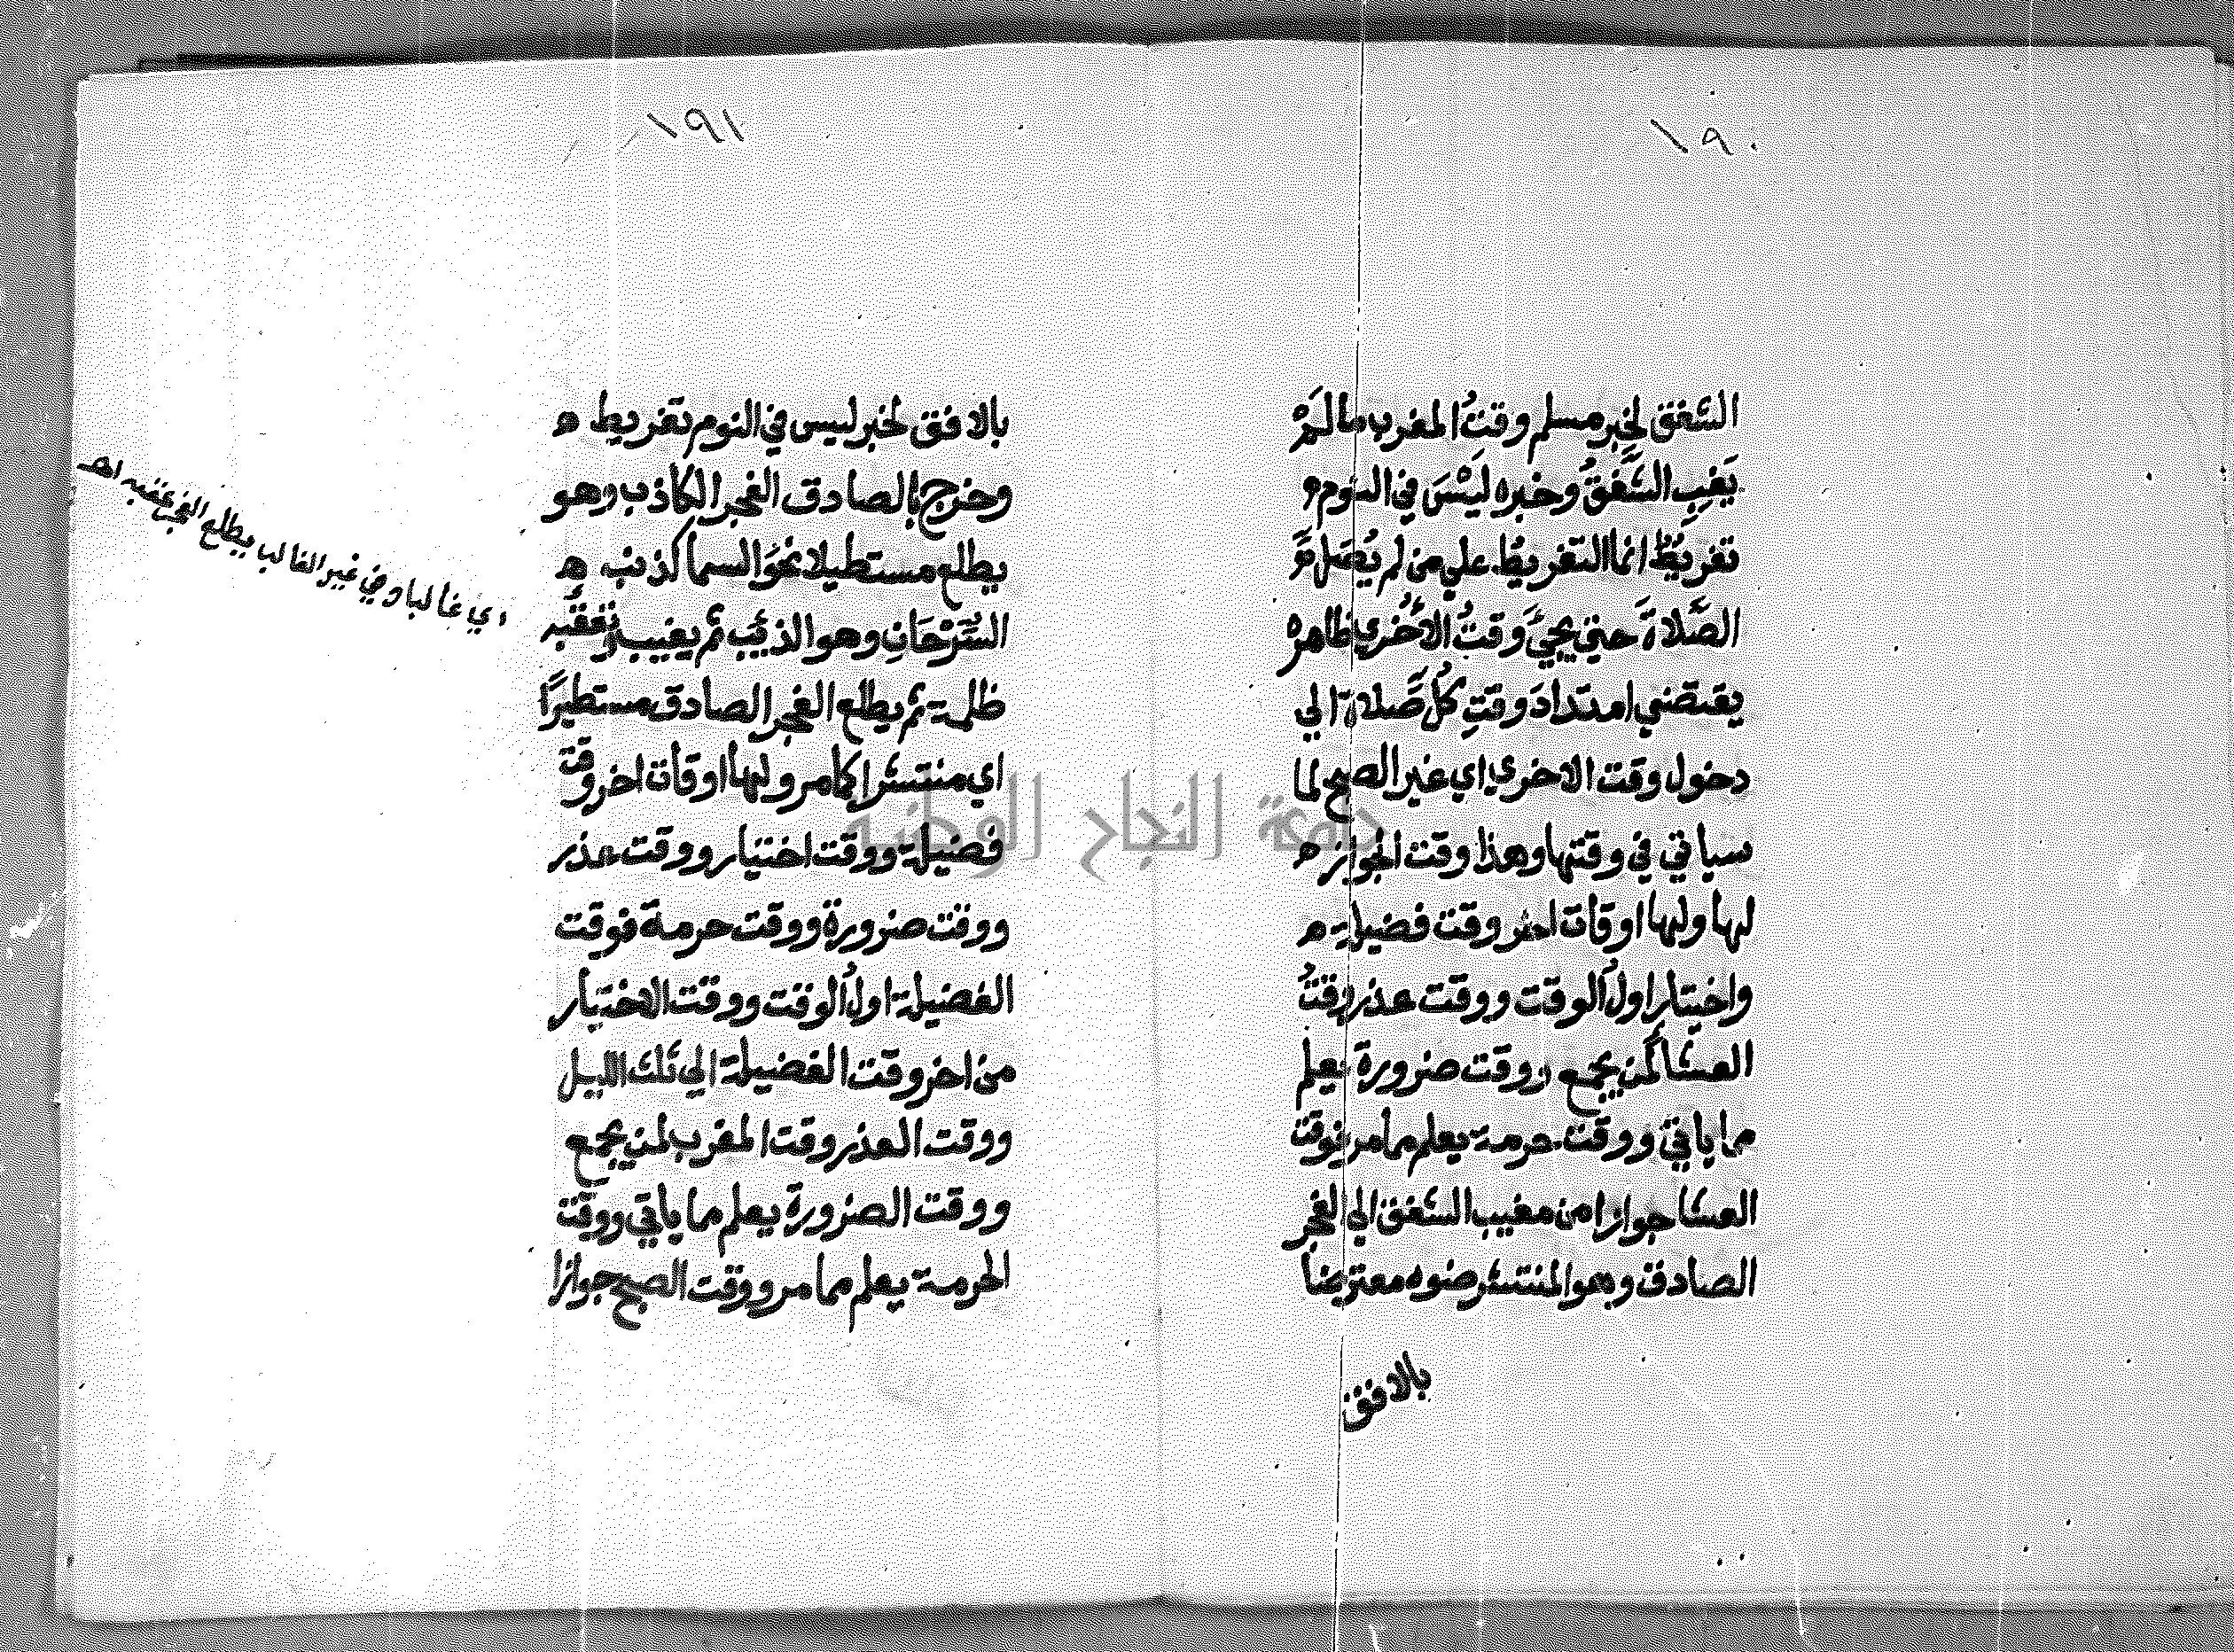 ١٩٠
الشَفق لخِبر مسلم وقتُ المغرب ما لَمْ
يَغِبِ الشَّفقُ وخبره ليْسَ في النوم
تفريطٌ انما التفريطُ علي من لم يُصَلِّ
الصَّلاةَ حتي يجئَ وقتُ الأُخري ظاهره
يقتضي امتدادَ وقتِ كُلِّ صَلاة الي
دخول وقت الاخري اي غير الصبح لما
سياتي في وقتها وهذا وقت الجواز
لها ولها اوقات اخر وقت فضيلة
واختيار اولُ الوقت ووقت عذر وقتُ
العشا لمن يجمع ووقت ضرورة يعلم
مما ياتي ووقت حرمة يعلم مما مر فوقت
العشا جوازا من مغيب الشفق الي الفجر
الصادق وهو المنتشر ضوه معترضا
بالافق
١٩١
بالافق لخبر ليس في النوم تفريط
وخرج بالصادق الفجر الكاذب وهو
يطلع مستطيلا نحوَ السما كذنب
السِّرْحَانِ وهو الذئب ثم يغيب وتعقبه
ظلمة ثم يطلع الفجر الصادق مستطيرًا
اي منتشرا كما مر ولها اوقات اخر وقت
فضيلة ووقت اختيار ووقت عذر
ووقت ضرورة ووقت حرمة فوقت
الفضيلة اولُ الوقت ووقت الاختيار
من اخر وقت الفضيلة الي ثلث الليل
ووقت العذر وقت المغرب لمن يجمع
ووقت الضرورة يعلم مما ياتي ووقت
الحرمة يعلم مما مر ووقت الصبح جوازا
اي غالبا وفي غير الغالب يطلع الفجر عقبه اهـ
جامعة النجاح الوطنية